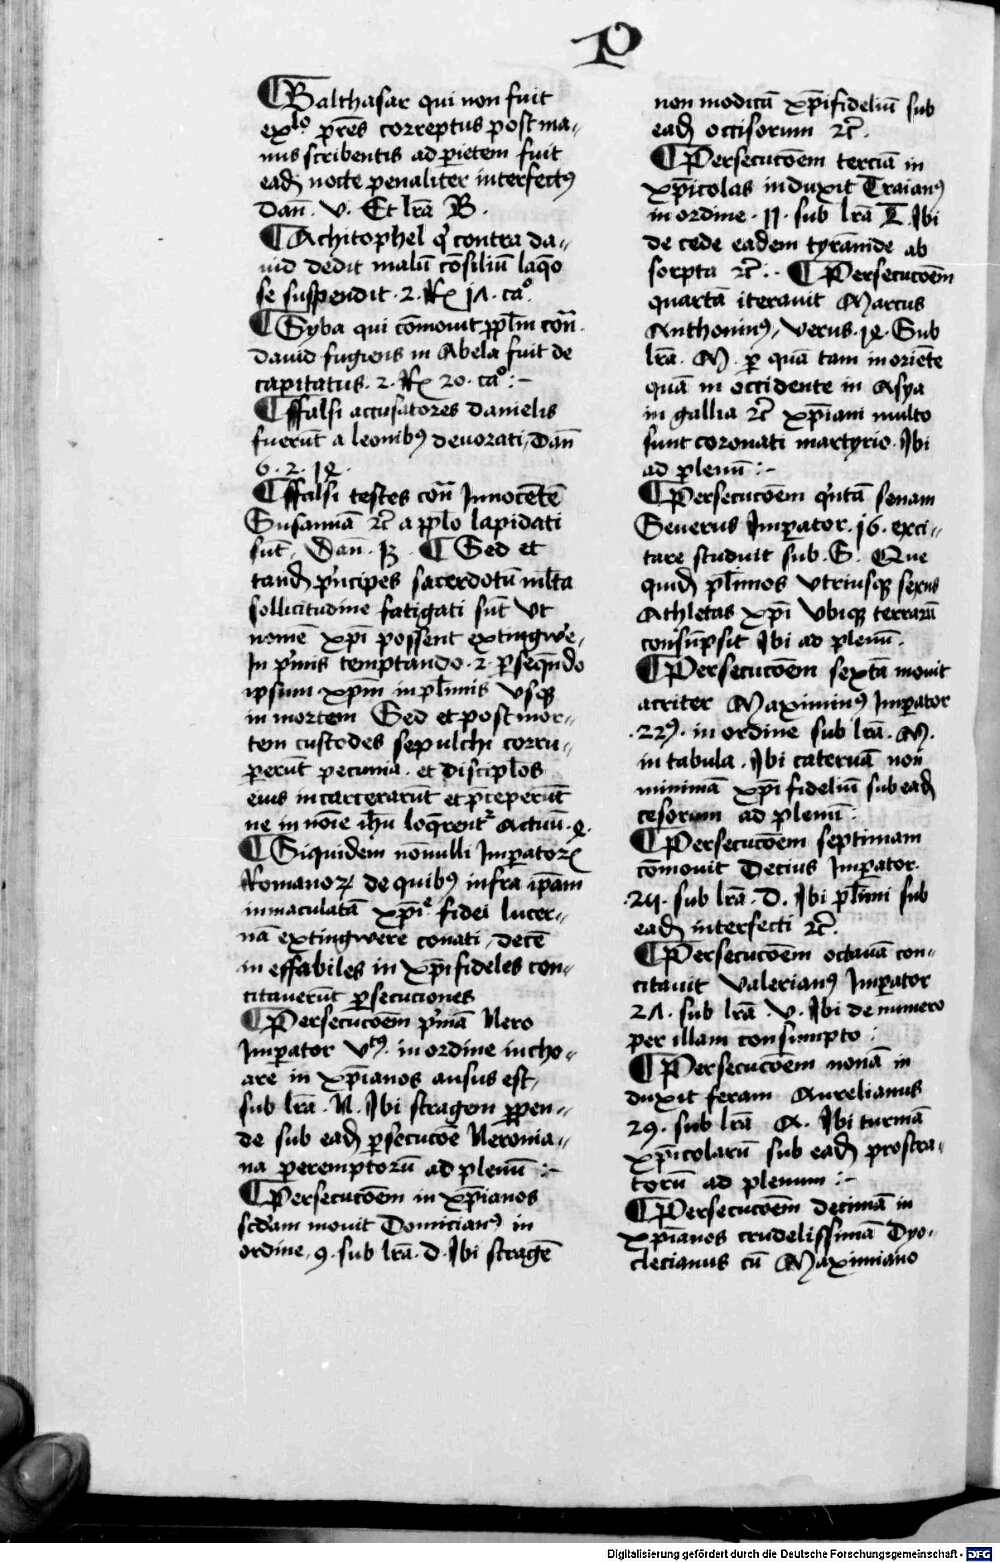 P
¶Balthasar qui non fuit
exlo pr̄es correptus post ma-
nus scribentis ad pietem fuit
ead̄ nocte penaliter interfectꝰ
Dan̄. v. Et lr̄a B.
¶Achitophel q̇ contra da-
uid dedit malū cōsiliū laq̄o
se suspendit. 2. Rꝭ 17. cao.
¶Syba qui cōmouit ppl̄m con̄.
dauid fugiens in Abela fuit de
capitatus. 2. Rꝭ 20. cao:-
¶ffalsi accusatores danielis
fuerūt a leonibꝰ deuorati, Dan̄
6. 2. 14.
¶ffalsi testes con̄ Innocētē
Susannā ⁊c̄ a pplo lapidati
sūt, Dan̄. 13. ¶Sed et
tand̄ p̍ncipes sacerdotū ml̄ta
sollicitudine fatigati sūt vt
nomē xp̄i possent extingwe,
In p̍mis temptando. ⁊ ꝑseq̄ndo
ipsum xp̄m in pl̄imis vsqꝫ
in mortem Sed et post mor-
tem custodes sepulchi corru-
perūt pecunia. et discipl̄os
eius incarcerarūt et p̄ceperūt
ne in noīe ih̄u loq̄rent᷑ Actuū. 4.
¶Siquidem nōnulli Imperatorꝭ
Romanoꝝ de quibꝰ infra ip̄am
inmaculatā xp̄i fidei lucer-
nā extingwere conati, decē
in effabiles in xp̄ifideles con-
citauerūt ꝑsecuciones
¶Persecucōem p̍mā Nero
Imperator vtꝰ. in ordine incho-
are in xp̄ianos ausus est,
sub lr̄a. N. Ibi stragem ꝓpen-
de sub ead̄ ꝑsecucōe Neronia-
na peremptorū ad plenū:-
¶Persecucōem in xp̄ianos
scd̄am mouit Domicianꝰ in
ordine. 9. sub lr̄a. D. Ibi stragē
non modicā xp̄ifideliū sub
ead̄ occisorum ⁊c̄.
¶Persecucōem terciā in
xp̄icolas induxit Traianꝰ
in ordine. 11. sub lr̄a T. Ibi
de cede eadem tyrānide ab
sorpta ⁊c̄:. ¶Persecucōem
quartā iterauit Marcus
Anthoninꝰ, verus. 14. Sub
lr̄a. M. ꝑ quā tam in oriēte
quā in occidente in Asya
in gallia ⁊c̄ xp̄iani multo
sunt coronati martyrio. Ibi
ad plenū:-
¶Persecucōem q̍ntā senam
Seuerus Imperator. 16. exci-
tare studuit sub. S. Que
quid̄ pl̄imos vtriusqꝫ sexus
Athletas xp̄i vbiqꝫ terrarū
consūpsit Ibi ad plenū.
¶Persecucōem sextā mouit
acriter Maximinꝰ Imperator
.22ꝰ. in ordine sub lr̄a. M.
in tabula. Ibi cateruā non
minimā xp̄i fideliū sub ead̄
cesorum ad plenū:
¶Persecucōem septimam
cōmouit Decius Imperator.
.24. sub lr̄a. D. Ibi pl̄imi sub
ead̄ interfecti ⁊c̄.
¶Persecucōem octauā con-
citauit valerianꝰ Imperator
27. sub lr̄a. v. Ibi de numero
per illam consumpto:
¶Persecucōem nonā in
duxit feram Aurelianus
29. sub lr̄a A. Ibi turmā
xp̄icolarū sub ead̄ prostra-
torū ad plenum:-
¶Persecucōem decimā in
xp̄ianos crudelissimā Dyo-
clecianus cū Maximiano
Digitalisierung gefördert durch die Deutsche Forschungsgemeinschaft - DFG